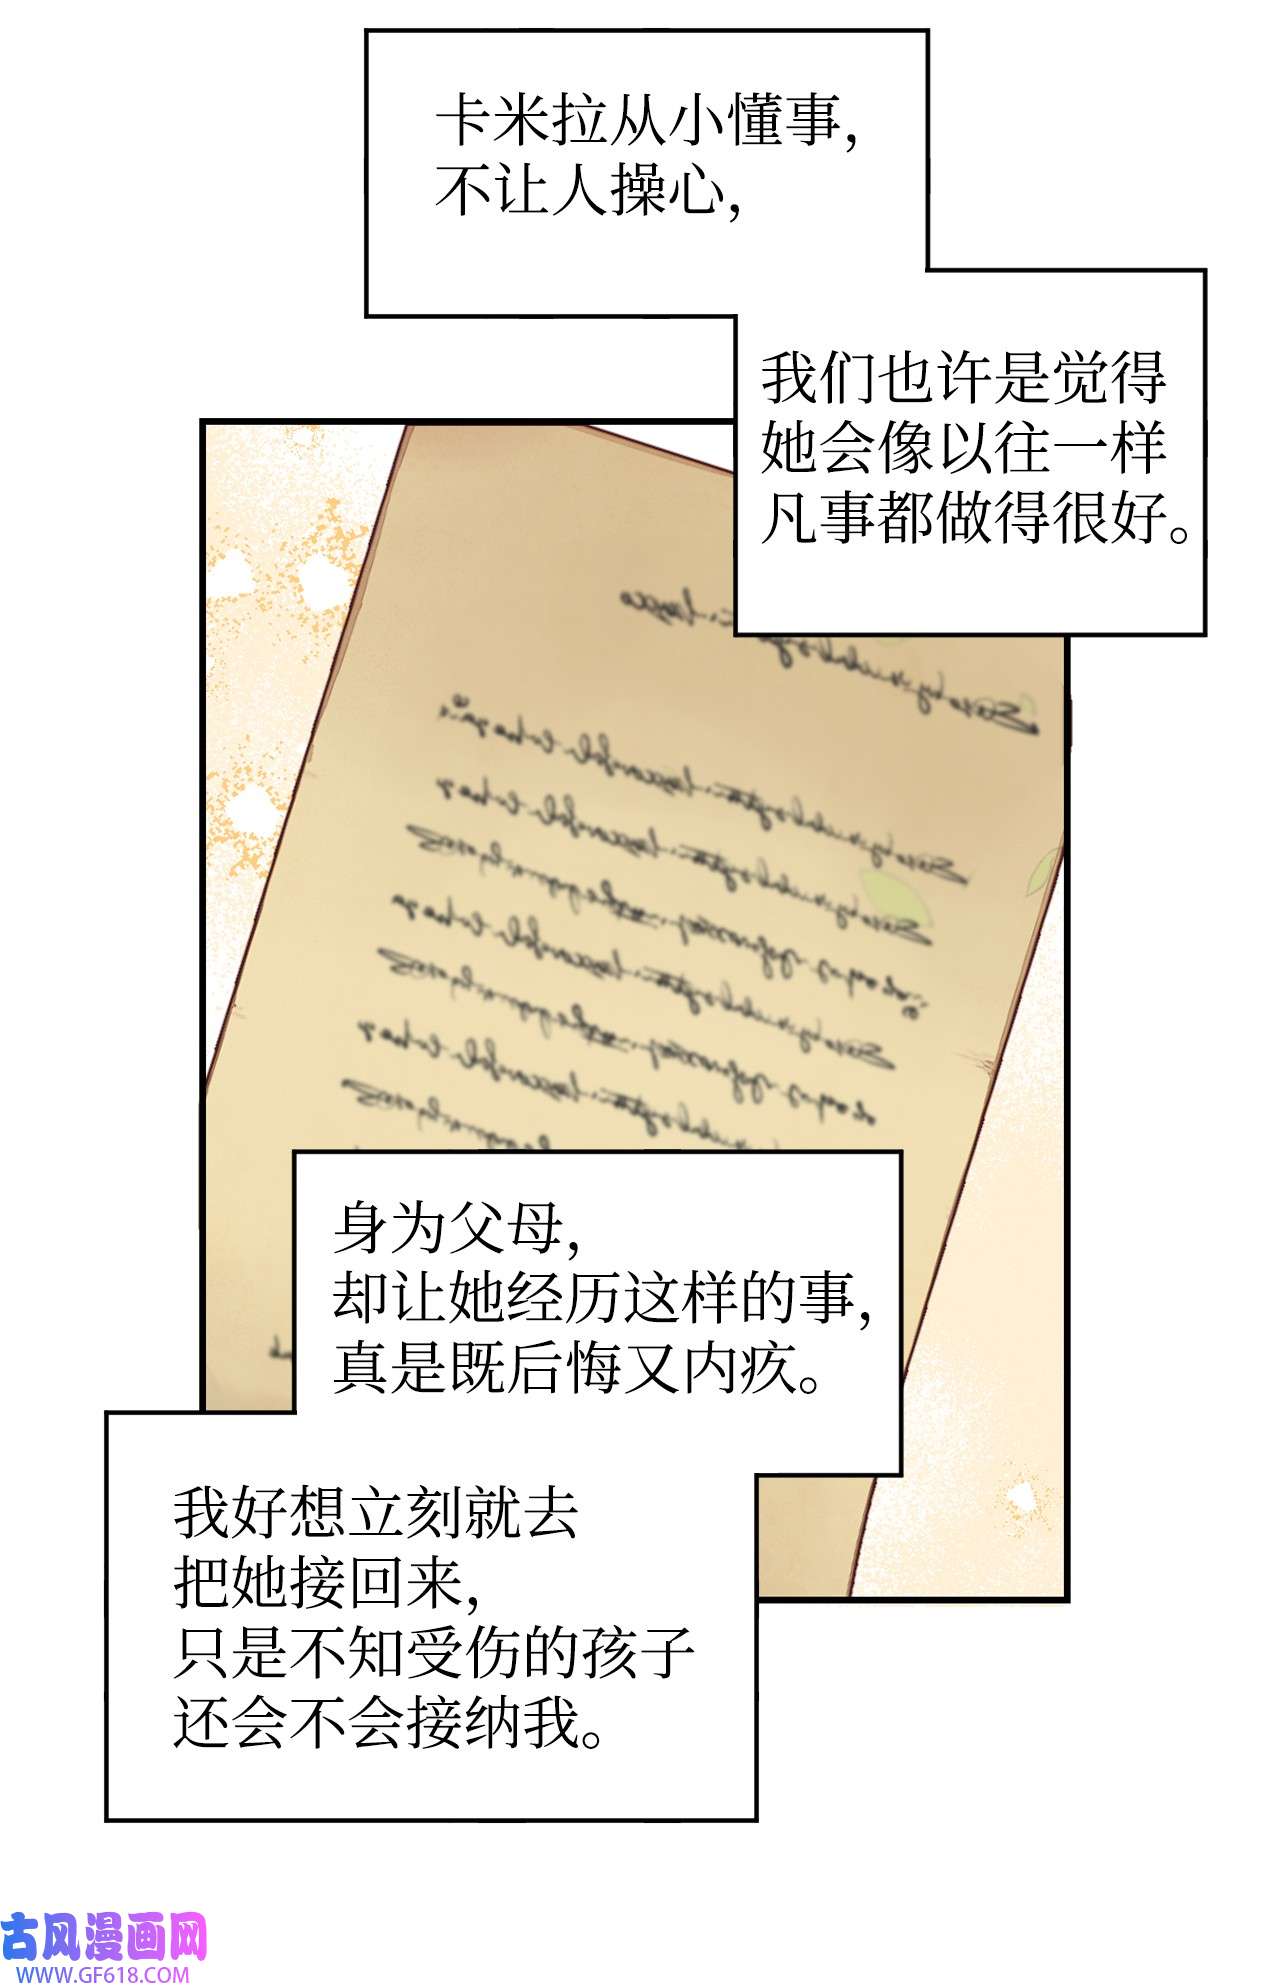 卡米拉从小懂事，
不让人操心，
我们也许是觉得
她会像以往一样
凡事都做得很好。
身为父母，
却让她经历这样的事，
真是既后悔又内疚。
我好想立刻就去
把她接回来，
只是不知受伤的孩子
还会不会接纳我。
古风漫画网
WWW.GF618.COM